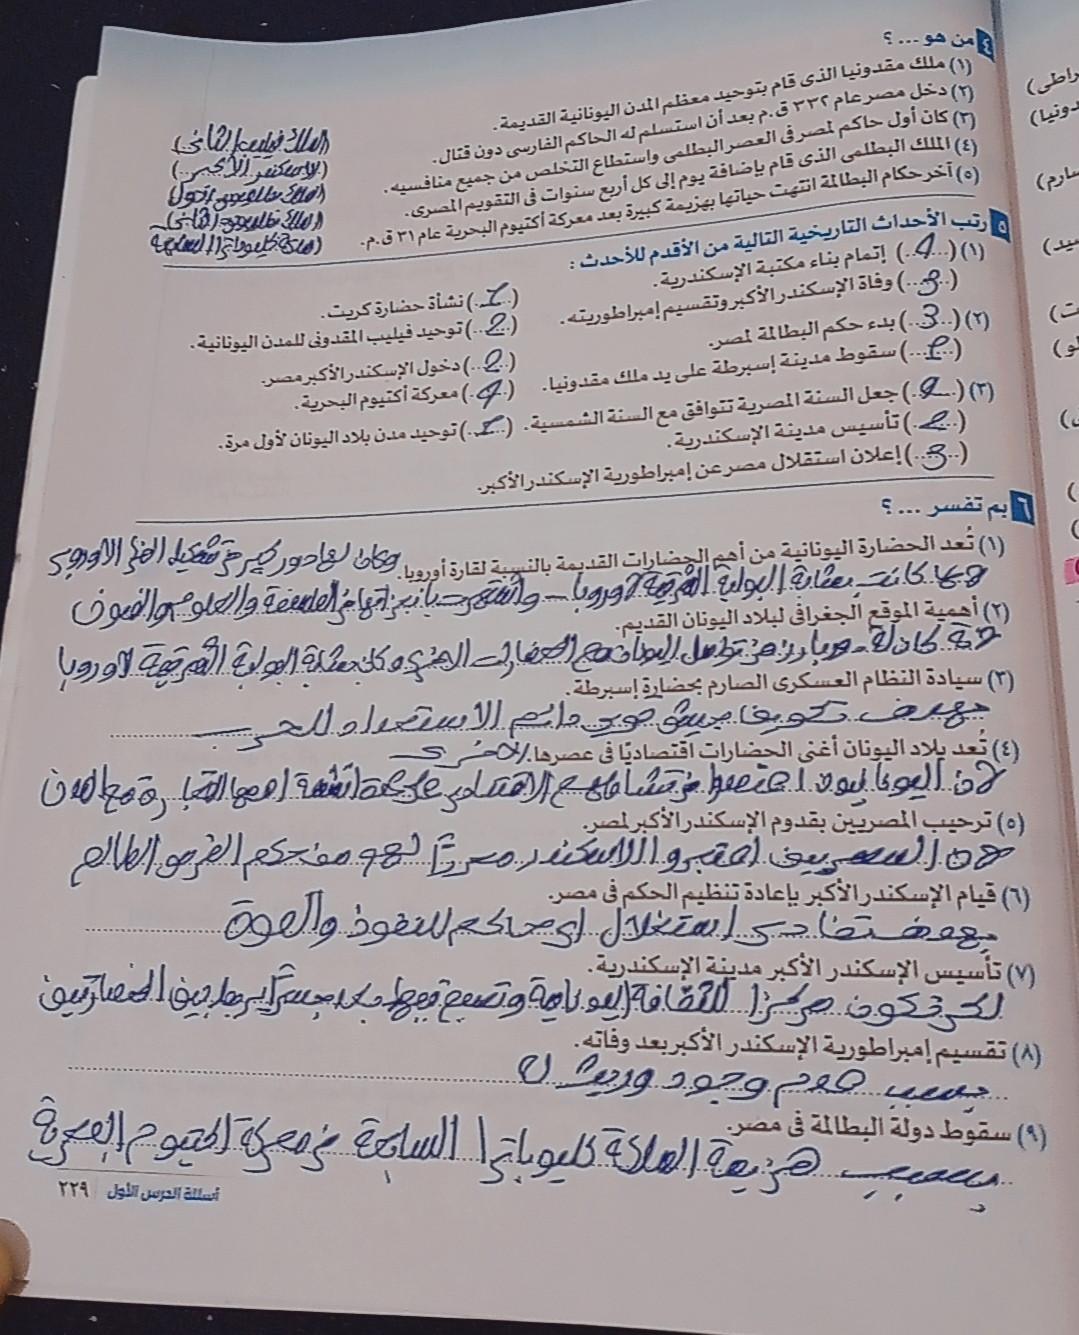 ٤ من هو ... ؟
(١) ملك مقدونيا الذى قام بتوحيد معظم المدن اليونانية القديمة. (الملك فيليب الثانى)
(٢) دخل مصر عام ٣٣٢ ق.م بعد أن استسلم له الحاكم الفارسى دون قتال. (الاسكندر الأكبر)
(٣) كان أول حاكم لمصر فى العصر البطلمى واستطاع التخلص من جميع منافسيه. (الملك بطليموس الأول)
(٤) الملك البطلمى الذى قام بإضافة يوم إلى كل أربع سنوات فى التقويم المصرى. (الملك بطليموس الثانى)
(٥) آخر حكام البطالمة انتهت حياتها بهزيمة كبيرة بعد معركة أكتيوم البحرية عام ٣١ ق.م. (الملكة كليوباترا السابعة)
٥ رتب الأحداث التاريخية التالية من الأقدم للأحدث :
(١) (4) إتمام بناء مكتبة الإسكندرية. (1) نشأة حضارة كريت.
(3) وفاة الإسكندر الأكبر وتقسيم إمبراطوريته. (2) توحيد فيليب المقدونى للمدن اليونانية.
(٢) (3) بدء حكم البطالمة لمصر. (2) دخول الإسكندر الأكبر مصر.
(1) سقوط مدينة إسبرطة على يد ملك مقدونيا. (4) معركة أكتيوم البحرية.
(٣) (4) جعل السنة المصرية تتوافق مع السنة الشمسية. (1) توحيد مدن بلاد اليونان لأول مرة.
(2) تأسيس مدينة الإسكندرية.
(3) إعلان استقلال مصر عن إمبراطورية الإسكندر الأكبر.
٦ بم تفسر ... ؟
(١) تُعد الحضارة اليونانية من أهم الحضارات القديمة بالنسبة لقارة أوروبا. وكان لها دور كبير فى تشكيل الأوروبى
كانت بمثابة البوابة الشرقية لأوروبا واشتهرت الفلسفة والعلوم والفنون
(٢) أهمية الموقع الجغرافى لبلاد اليونان القديم.
كان له دور بارز فى تواصل اليونان مع الحضارات الاخرى وكان بمثابة البوابة الشرقية لأوروبا
(٣) سيادة النظام العسكرى الصارم بحضارة إسبرطة.
بهدف تكوين جيش قوى دائم الاستعداد للحرب
(٤) تُعد بلاد اليونان أغنى الحضارات اقتصاديًا فى عصرها. الاخرى
لأن اليونانيون اعتمدوا فى نشاطهم الاقتصادى على عدة أنشطة اهمها التجارة مع المدن
(٥) ترحيب المصريين بقدوم الإسكندر الأكبر لمصر.
لأن المصريين اعتبروا الاسكندر محررًا لهم من حكم الفرس الظالم
(٦) قيام الإسكندر الأكبر بإعادة تنظيم الحكم فى مصر.
استغلال اى حاكم للنفوذ والقوة
(٧) تأسيس الإسكندر الأكبر مدينة الإسكندرية.
لكى تكون مركزا للثقافة اليونانية وتصبح جسرًا يربط بين الحضارتين
(٨) تقسيم إمبراطورية الإسكندر الأكبر بعد وفاته.
بسبب عدم وجود وريث له
(٩) سقوط دولة البطالمة فى مصر.
بسبب هزيمة الملكة كليوباترا السابعة فى معركة اكتيوم البحرية
أسئلة الدرس الأول ٢٢٩